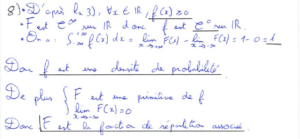 8) • D'après 3), ∀x ∈ ℝ, f(x) ⩾ 0
• F est C^∞ sur ℝ donc f est C^∞ sur ℝ.
• On a : ∫_{-∞}^{+∞} f(x) dx = lim_{x→+∞} F(x) - lim_{x→-∞} F(x) = 1 - 0 = 1
Donc f est une densité de probabilité.
De plus { F est une primitive de f
lim_{x→-∞} F(x) = 0
Donc F est la fonction de répartition associée